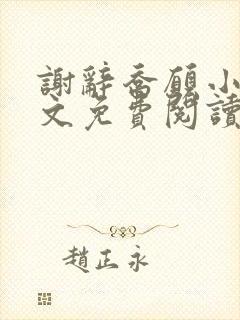 謝辭喬願小
文免費閱讀
趙正永